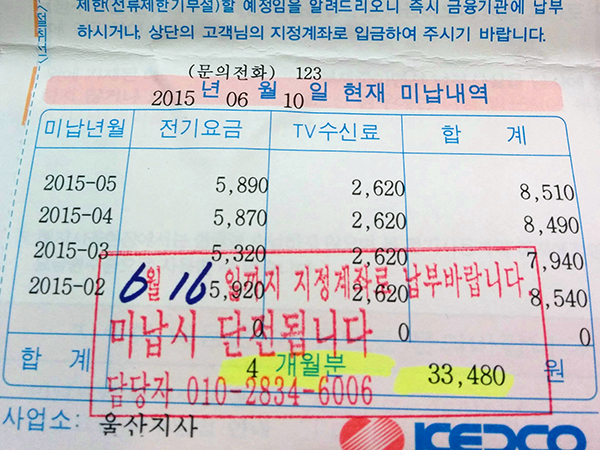 제한(전류제한기부설)할 예정임을 알려드리오니 즉시 금융기관에 납부
하시거나, 상단의 고객님의 지정계좌로 입금하여 주시기 바랍니다.
(문의전화) 123
2015 년 06 월 10 일 현재 미납내역
미납년월 전기요금 TV수신료 합 계
2015-05 5,890 2,620 8,510
2015-04 5,870 2,620 8,490
2015-03 5,320 2,620 7,940
2015-02 5,920 2,620 8,540
0 0 0
6월 16일까지 지정계좌로 납부바랍니다.
미납시 단전됩니다
담당자 010-2834-6006
합 계 4 개월분 33,480 원
사업소: 울산지사
KEPCO